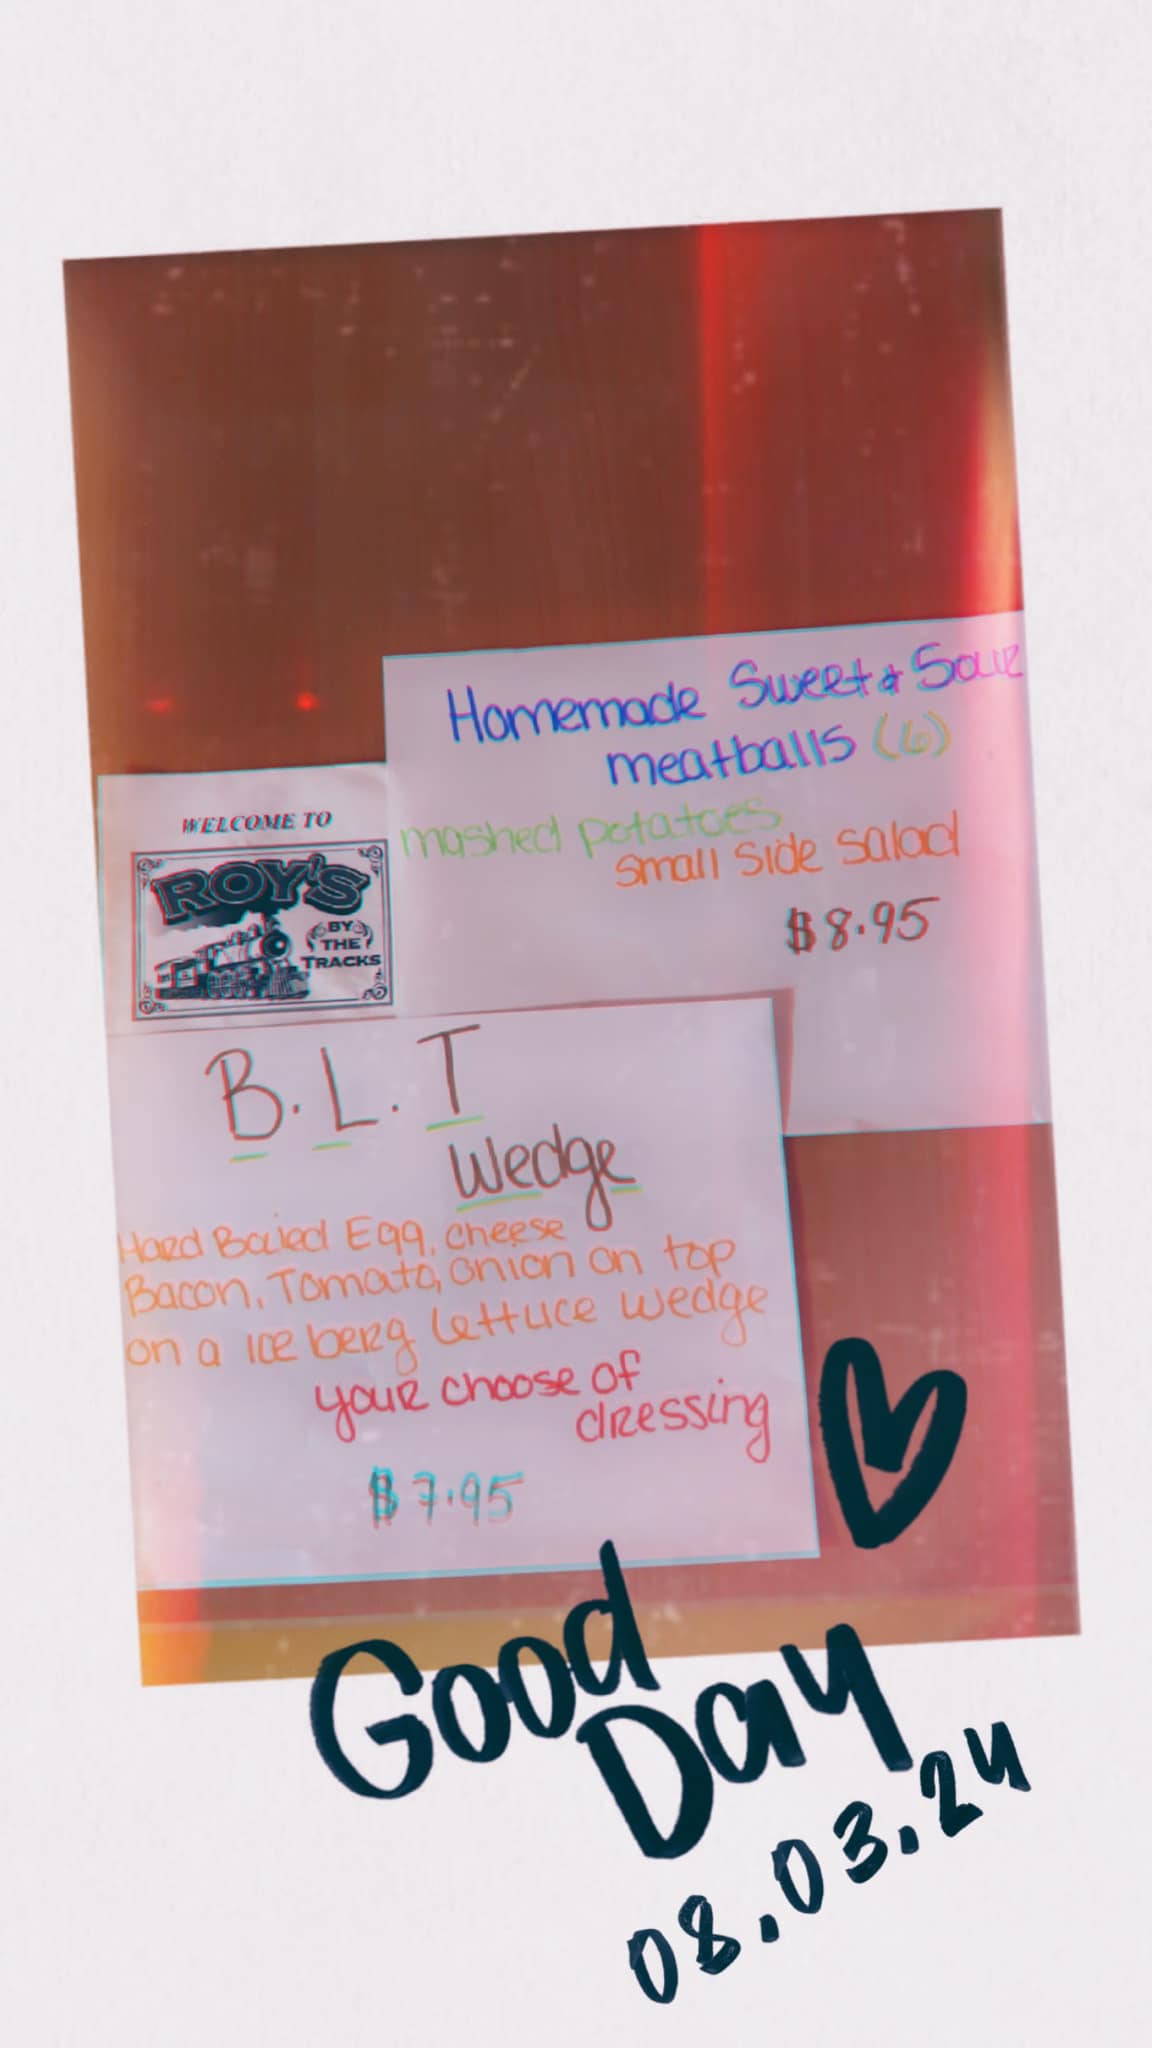 Homemade Sweet & Sour
meatballs (6)
mashed potatoes
small side salad
$8.95
WELCOME TO
ROY'S
BY
THE
TRACKS
B.L.T
Wedge
Hard Boiled Egg, cheese
Bacon, Tomato, onion on top
on a ice berg lettuce wedge
your choose of
dressing
$7.95
Good
Day
08.03.24